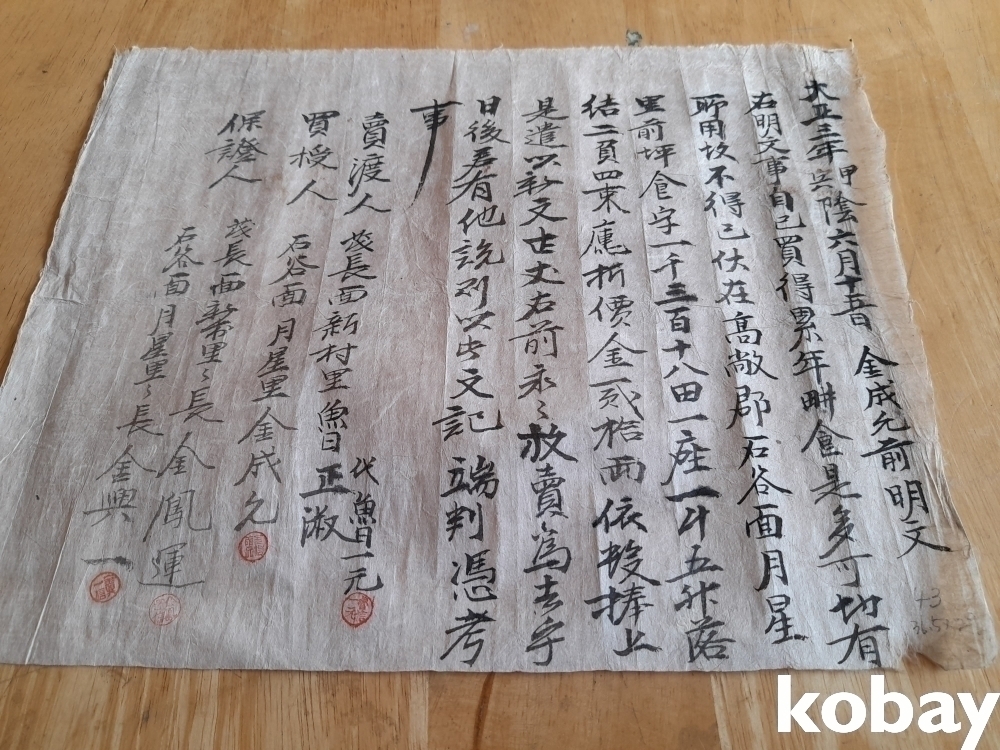 大正三年甲寅陰六月十五日 金成允前明文
右明文事自己買得累年畊食是多可切有
所用故不得已伏在高敞郡石谷面月星
里前坪食字一千三百十八田一座一斗五升落
結二負四束廤折價金一百拾兩依數捧上
是遣以新文壹丈右前永々放賣爲去乎
日後若有他說則以此文記 端判憑考
事
賣渡人 茂長面新村里 魯正淑 代 魯一元
買授人 石谷面 月星里 金成允
保證人 茂長面新村里々長 金鳳運
石谷面月星里々長 金興一
43
kobay